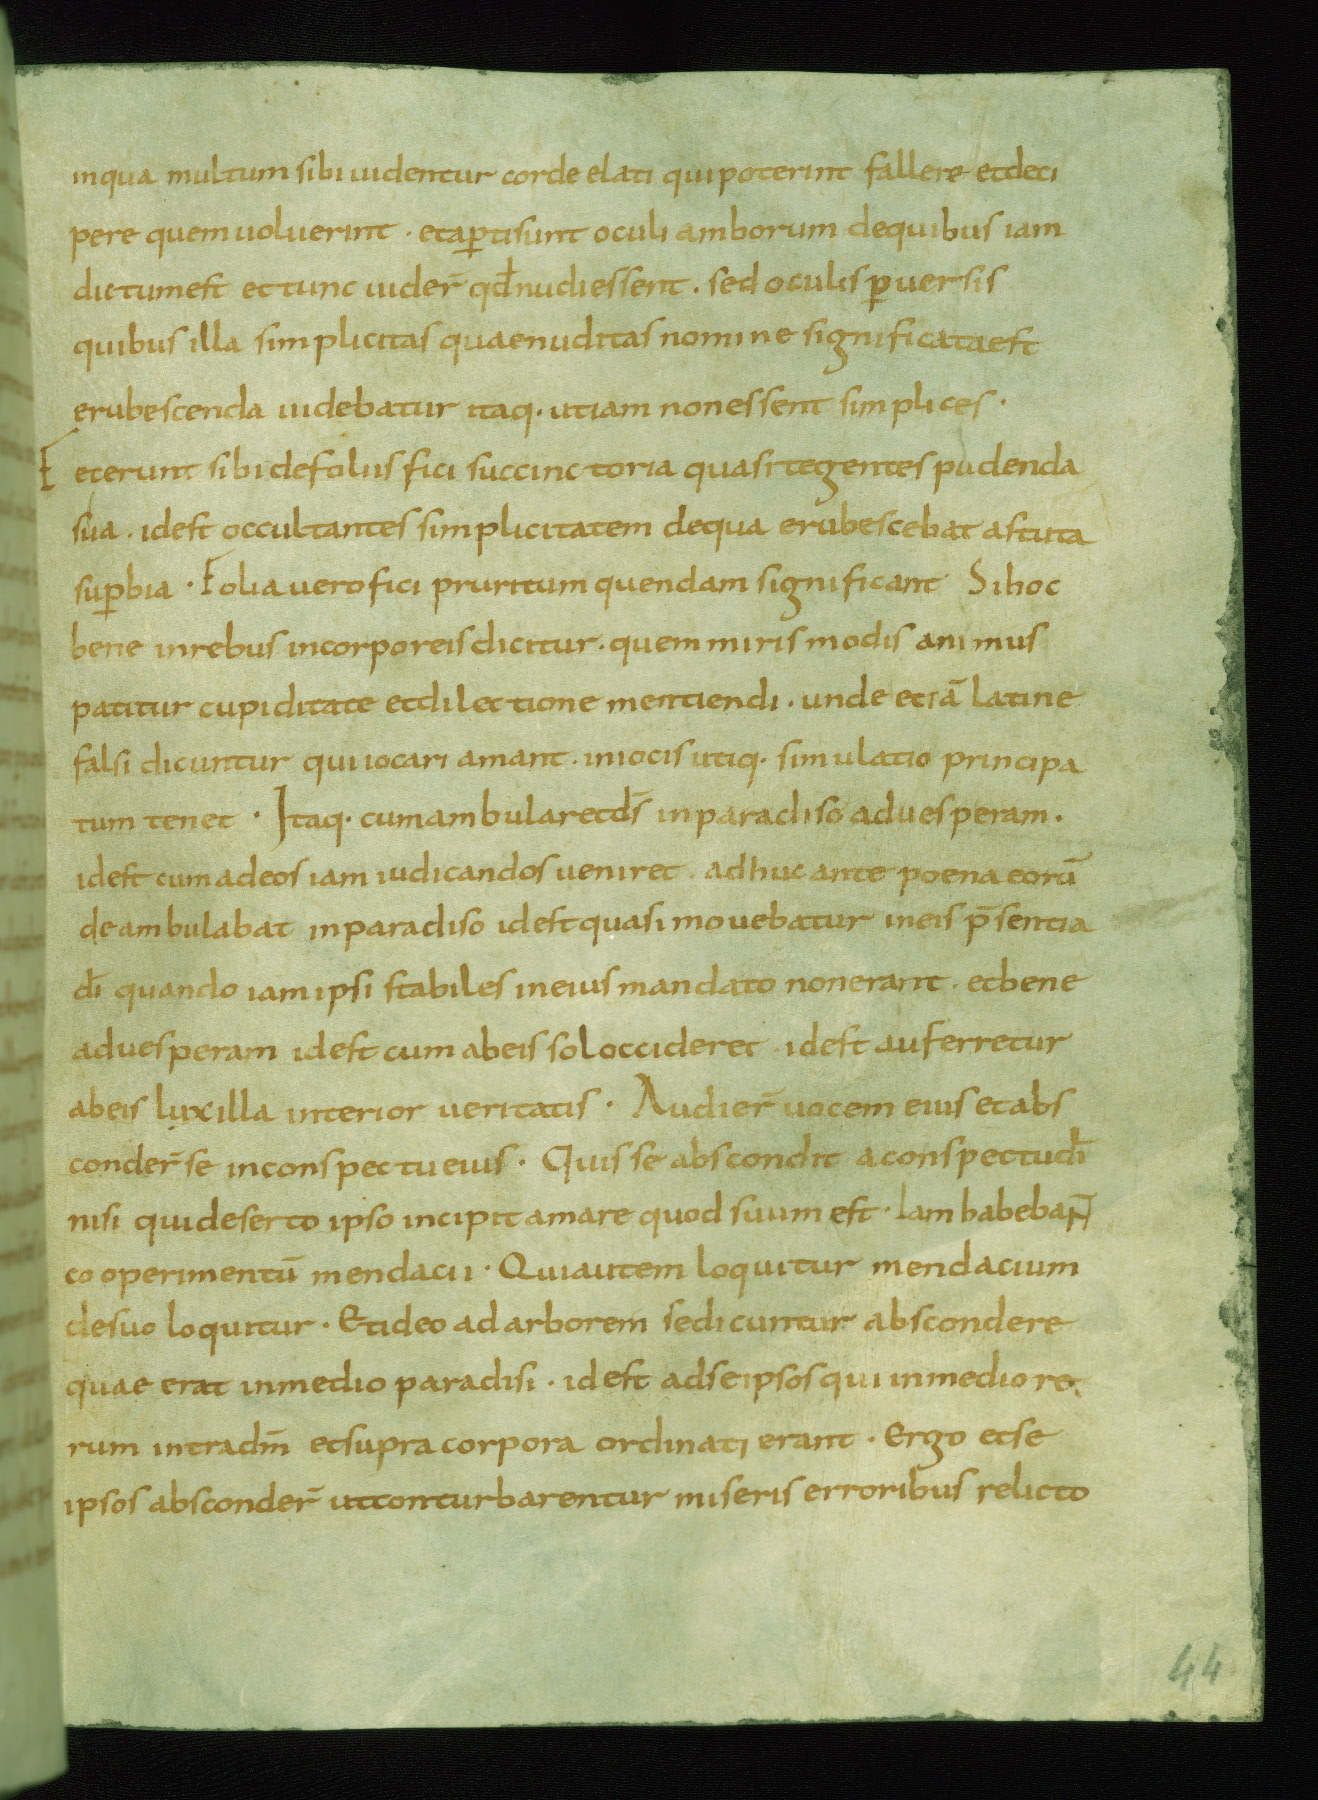 inqua multum sibi uidentur corde elati qui poterint fallere et deci
pere quem uoluerint · et aꝑti sunt oculi amborum de quibus iam
dictum est et tunc uider̄ qđ nudi essent . sed oculis ꝑuersis
quibus illa simplicitas quae nuditas nomine significata est
erubescenda uidebatur itaq· ut iam non essent simplices ·
Fecerunt sibi de foliis fici succinctoria quasi tegentes pudenda
sua . id est occultantes simplicitatem de qua erubescebat astuta
suꝑbia · Folia uero fici pruritum quendam significant Si hoc
bene in rebus incorporeis dicitur . quem miris modis animus
patitur cupiditate et dilectione mentiendi . unde etiā latine
falsi dicuntur qui iocari amant . in iocis utiq· simulatio principa
tum tenet · Itaq· cum ambularet ds̄ in paradiso ad uesperam .
id est cum ad eos iam iudicandos ueniret . adhuc ante poena eorū
deambulabat in paradiso id est quasi mouebatur in eis p̄sentia
dī quando iam ipsi stabiles in eius mandato non erant . et bene
ad uesperam id est cum ab eis sol occideret id est auferretur
ab eis lux illa interior ueritatis · Audier̄ uocem eius et abs
conder̄ se in conspectu eius · Quis se abscondit a conspectu dī
nisi qui deserto ipso incipit amare quod suum est · Iam habebaɴ̄
cooperimentū mendacii · Qui autem loquitur mendacium
de suo loquitur · Et ideo ad arborem se dicuntur abscondere
quae erat in medio paradisi · id est ad se ipsos qui in medio re
rum intra dm̄ et supra corpora ordinati erant · Ergo et se
ipsos absconder̄ ut conturbarentur miseris erroribus relicto
44